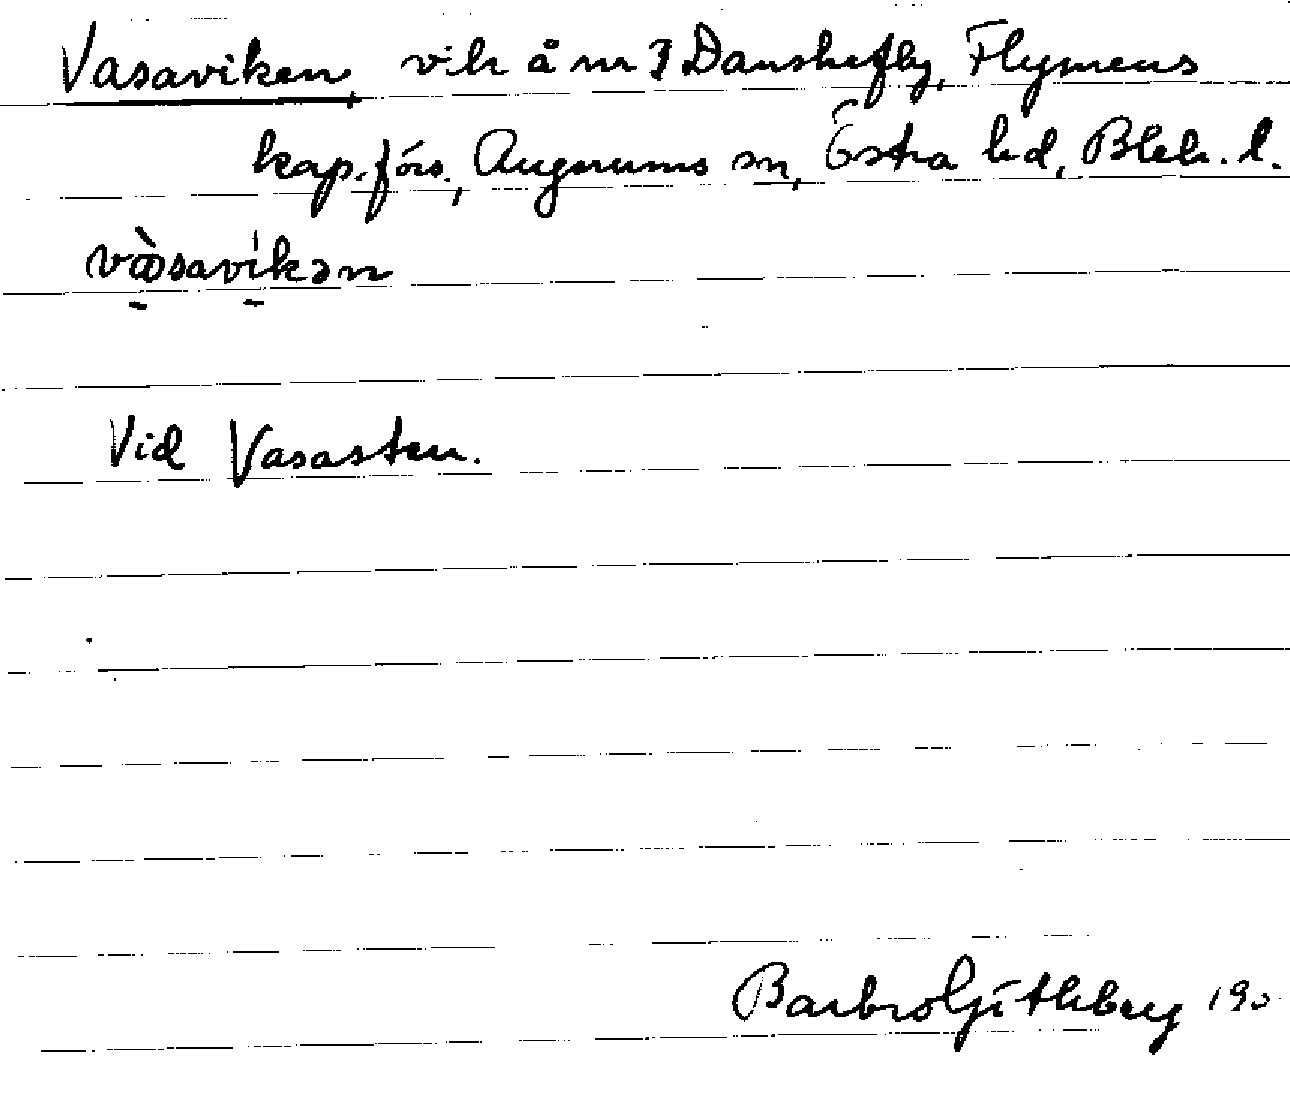 Vasaviken, vik å nr 3 Danskefly, Flymens
kap.förs., Augerums sn, Östra hd, Blek. l.
Vid Vasasten.
Barbro 190